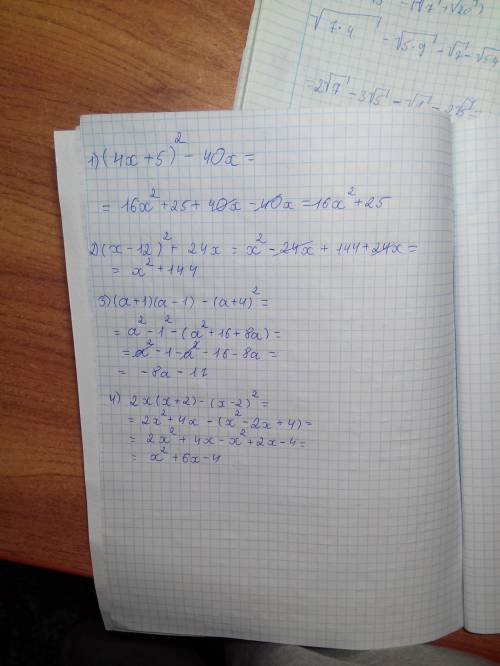 √7·4 - √5·9 - √7 - √5·4
=2√7 - 3√5 - √7 - 2√5=
1) (4x+5)² - 40x =
= 16x² + 25 + 40x - 40x = 16x² + 25
2) (x-12)² + 24x = x² - 24x + 144 + 24x =
= x² + 144
3) (a+1)(a-1) - (a+4)² =
= a² - 1² - (a² + 16 + 8a) =
= a² - 1 - a² - 16 - 8a =
= -8a - 17
4) 2x(x+2) - (x-2)² =
= 2x² + 4x - (x² - 2x + 4) =
= 2x² + 4x - x² + 2x - 4 =
= x² + 6x - 4